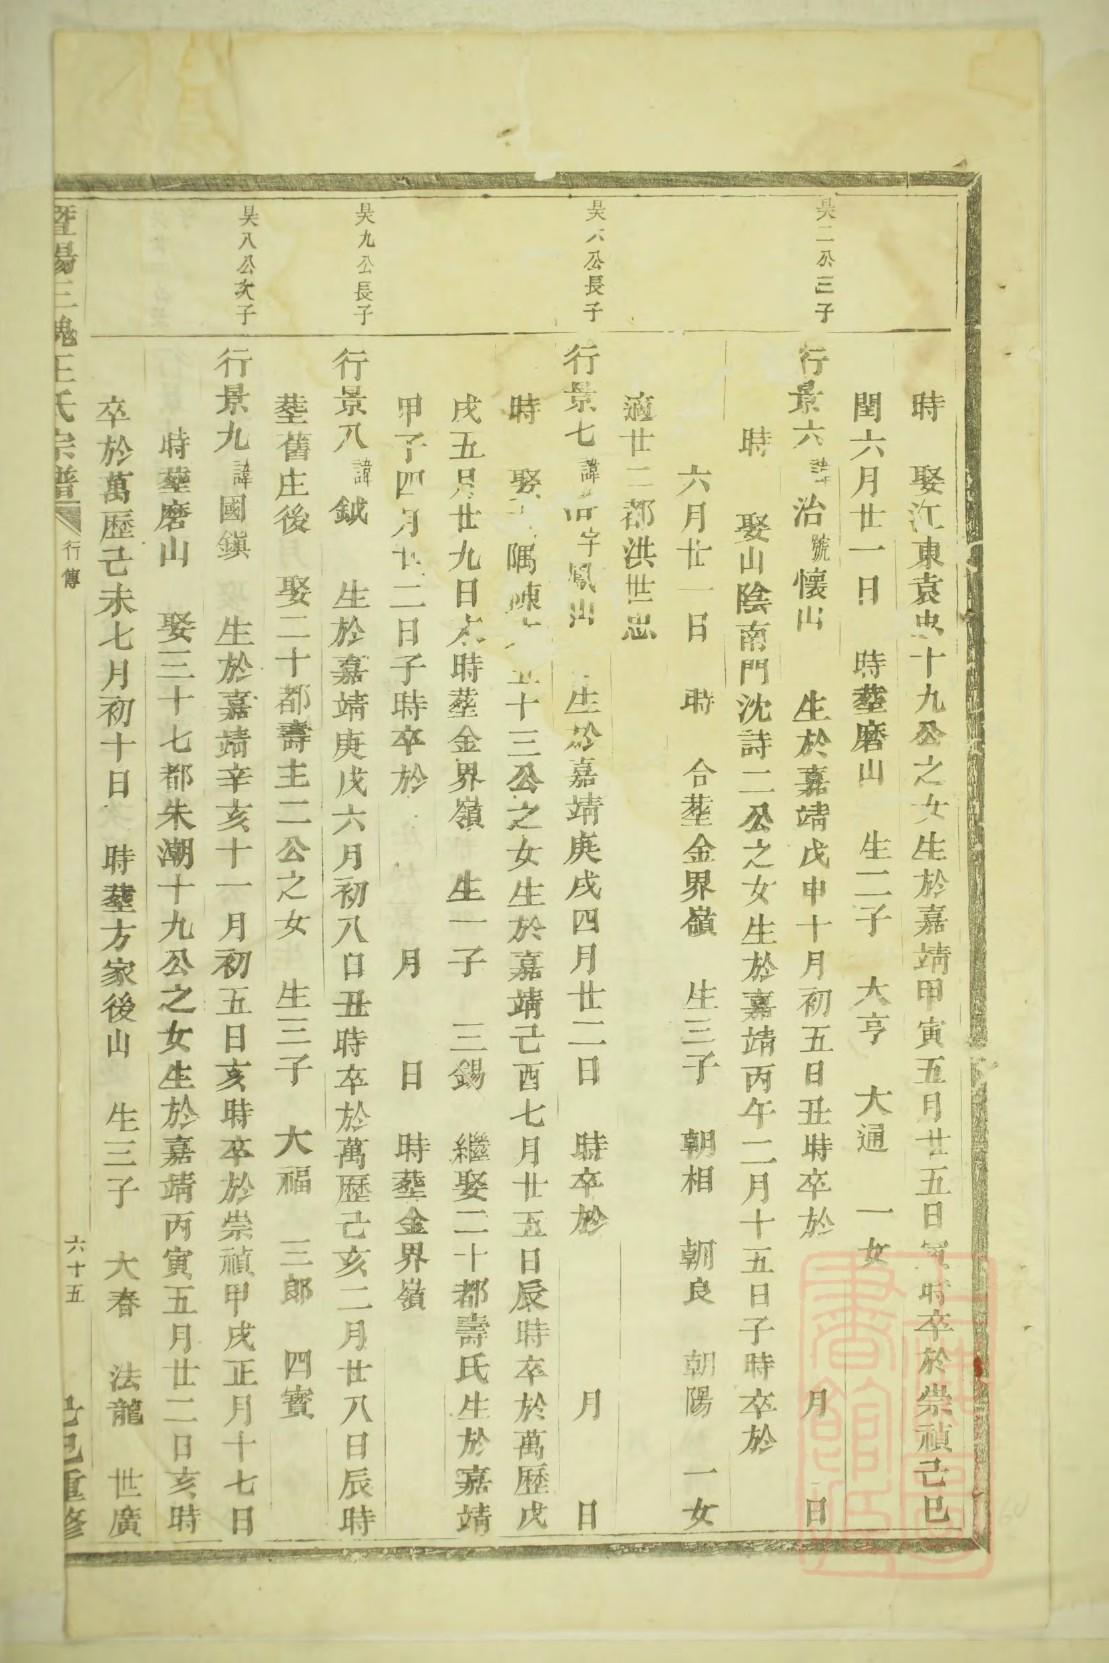 時　娶江東袁忠十九公之女生於嘉靖甲寅五月廿五日寅時卒於崇禎己巳
閏六月廿一日　時塟磨山　生二子　大亨　大通　一女
昊二公三子
行景六諱治號懷山　生於嘉靖戊申十月初五日丑時卒於　月　日
時　娶山陰南門沈詩二公之女生於嘉靖丙午二月十五日子時卒於
六月廿一日　時　合塟金界嶺　生三子　朝相　朝良　朝陽　一女
適廿二都洪世忠
昊六公長子
行景七諱　字鳳山　生於嘉靖庚戌四月廿二日　時卒於　月　日
時　娶　隅陳　五十三公之女生於嘉靖己酉七月廿五日辰時卒於萬歷戊
戌五月廿九日未時塟金界嶺　生一子　三錫　繼娶二十都壽氏生於嘉靖
甲子四月廿二日子時卒於　月　日　時塟金界嶺
昊九公長子
行景八諱鉞　生於嘉靖庚戌六月初八日丑時卒於萬歷己亥二月廿八日辰時
塟舊庄後　娶二十都壽主二公之女　生三子　大福　三郎　四寳
昊八公次子
行景九諱國鎮　生於嘉靖辛亥十一月初五日亥時卒於崇禎甲戌正月十七日
時塟磨山　娶三十七都朱潮十九公之女生於嘉靖丙寅五月廿二日亥時
卒於萬歷己未七月初十日　時塟方家後山　生三子　大春　法龍　世廣
暨陽三槐王氏宗譜　行傳　六十五　己巳重修